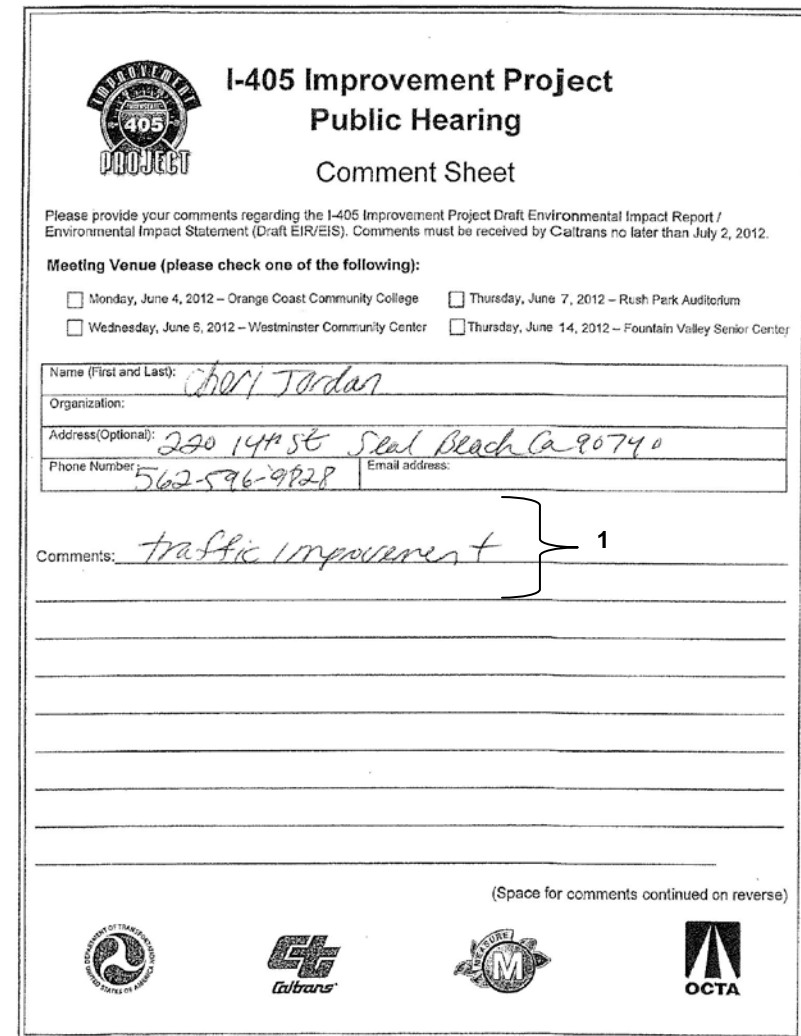 IMPROVEMENT
405
PROJECT
I-405 Improvement Project
Public Hearing
Comment Sheet
Please provide your comments regarding the I-405 Improvement Project Draft Environmental Impact Report /
Environmental Impact Statement (Draft EIR/EIS). Comments must be received by Caltrans no later than July 2, 2012.
Meeting Venue (please check one of the following):
Monday, June 4, 2012 – Orange Coast Community College
Thursday, June 7, 2012 – Rush Park Auditorium
Wednesday, June 6, 2012 – Westminster Community Center
Thursday, June 14, 2012 – Fountain Valley Senior Center
Name (First and Last): Cheri Jordan
Organization:
Address(Optional): 220 14th St Seal Beach Ca 90740
Phone Number: 562-596-9828 Email address:
Comments: traffic improvement
1
(Space for comments continued on reverse)
DEPARTMENT OF TRANSPORTATION
UNITED STATES OF AMERICA
Caltrans
MEASURE
M
OCTA